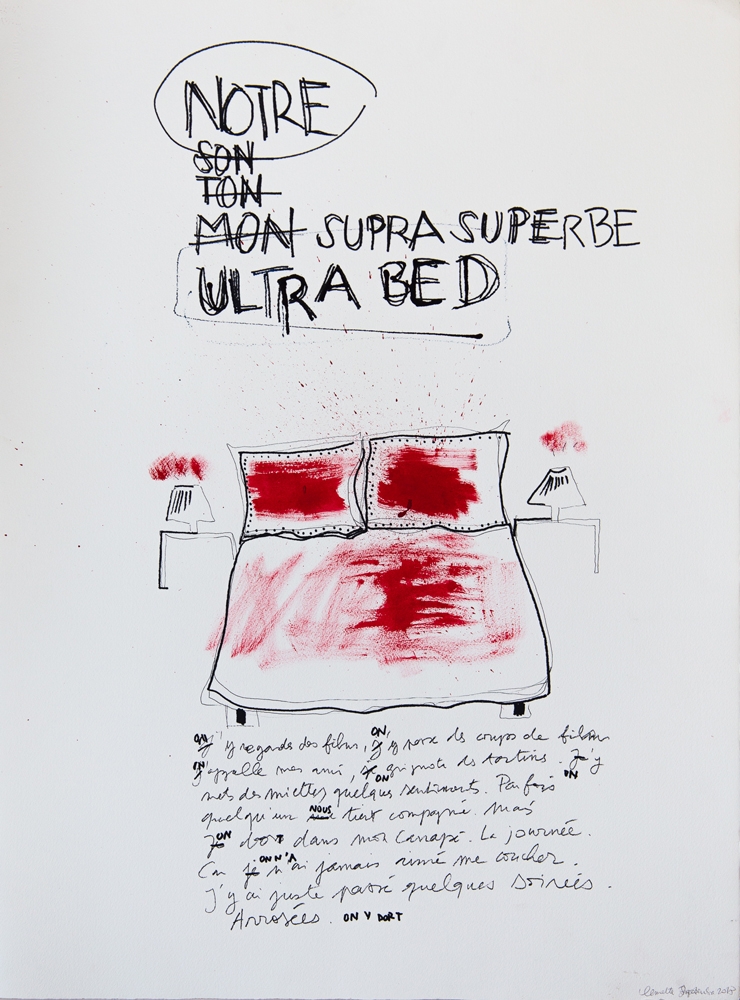 NOTRE
SON
TON
MON SUPRA SUPERBE
ULTRA BED
ON J'y regarde des films, ON J'y passe des coups de
ON J'appelle mes amis, ON grignote des tartines. J'y
ON mets des miettes quelques sentiments. Parfois
quelqu'un NOUS tient compagnie. Mais
Je ON dort dans mon canapé. La journée.
Car je ON N'A n'ai jamais aimé me coucher.
J'y ai juste passé quelques soirées.
Arrosées. ON Y DORT